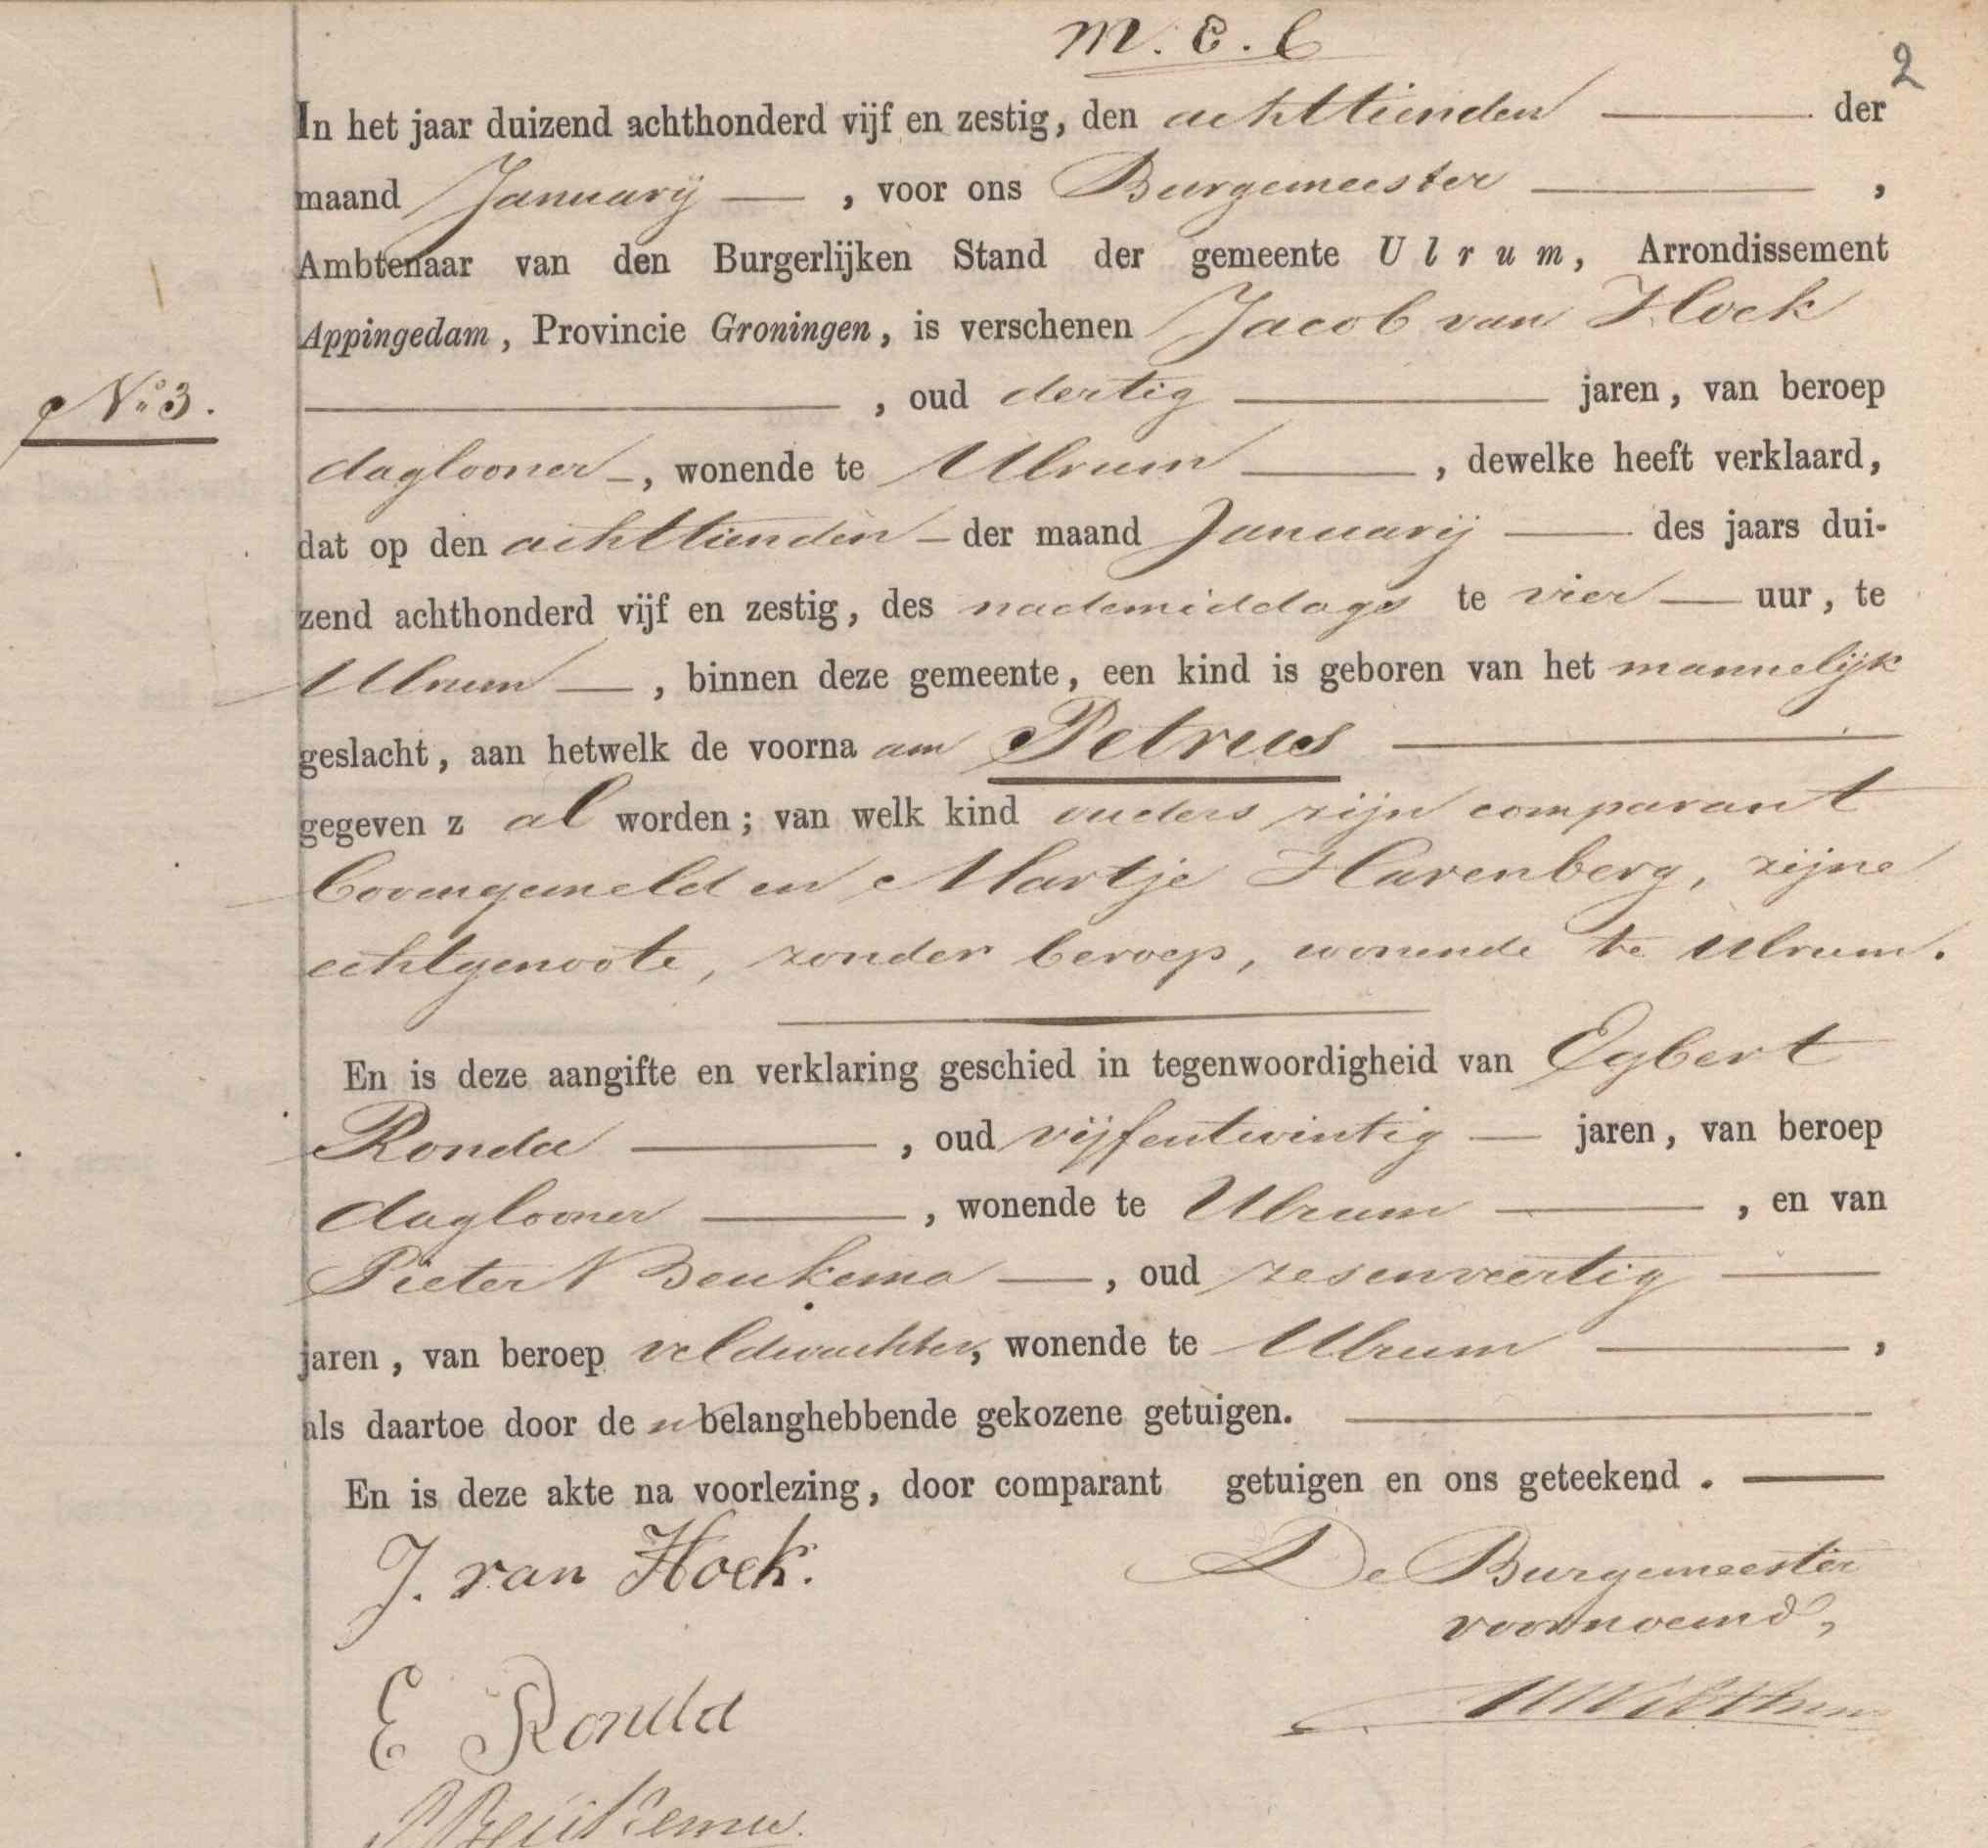 M. E. C
2
In het jaar duizend achthonderd vijf en zestig, den achttienden der
maand Januarij, voor ons Burgemeester,
Ambtenaar van den Burgerlijken Stand der gemeente Ulrum, Arrondissement
Appingedam, Provincie Groningen, is verschenen Jacob van Hoek
No 3.
, oud dertig jaren, van beroep
daglooner, wonende te Ulrum, dewelke heeft verklaard,
dat op den achttienden der maand Januarij des jaars dui-
zend achthonderd vijf en zestig, des nademiddags te vier uur, te
Ulrum, binnen deze gemeente, een kind is geboren van het mannelijk
geslacht, aan hetwelk de voornaam Petrus
gegeven zal worden; van welk kind ouders zijn comparant
bovengemeld en Martje Harenberg, zijne
echtgenoote, zonder beroep, wonende te Ulrum.
En is deze aangifte en verklaring geschied in tegenwoordigheid van Egbert
Ronda, oud vijfentwintig jaren, van beroep
daglooner, wonende te Ulrum, en van
Pieter Beukema, oud zesenveertig
jaren, van beroep veldwachter, wonende te Ulrum,
als daartoe door den belanghebbende gekozene getuigen.
En is deze akte na voorlezing, door comparant getuigen en ons geteekend.
J. van Hoek.
De Burgemeester
voornoemd,
E Ronda
Beukema.